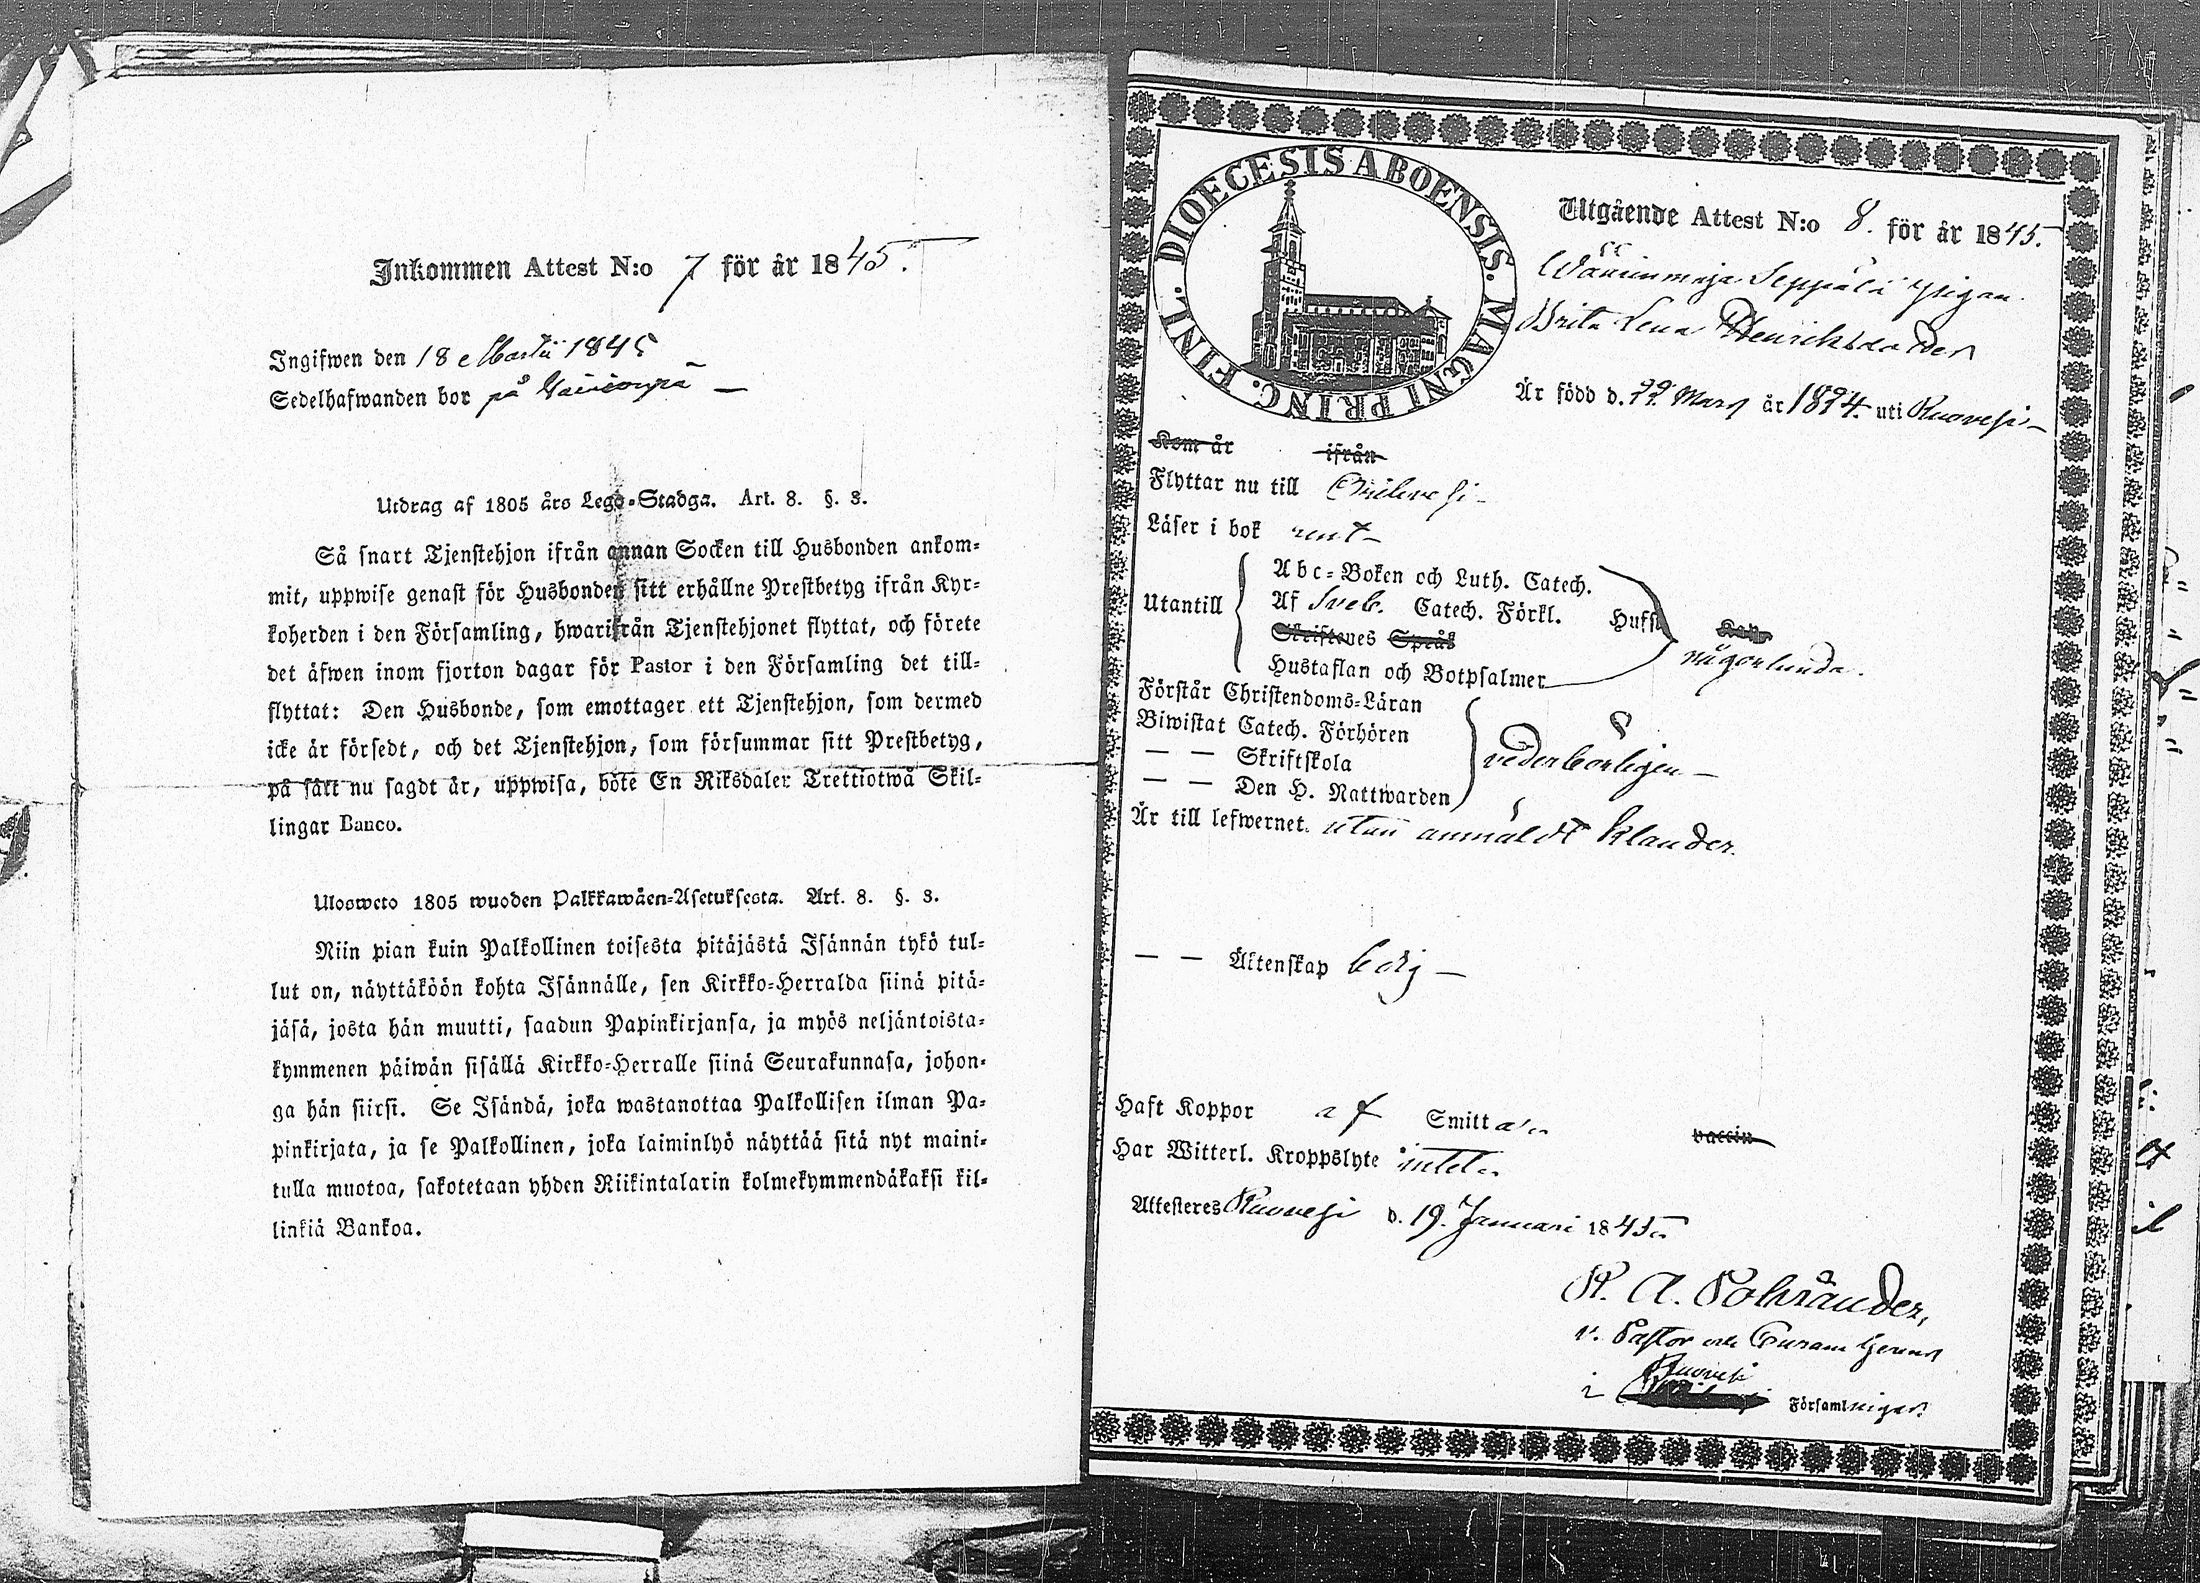 Inkommen Attest N:o 7 för år 1845.
Ingifwen den 18 Martii 1845
Sedelhafwanden bor på
Utdrag af 1805 års Lego-Stadga. Art. 8. §. 3.
Så snart Tjenstehjon ifrån annan Socken till Husbonden ankom-
mit, uppwise genast för Husbonden sitt erhållne Prestbetyg ifrån Kyr-
koherden i den Församling, hwarifrån Tjenstehjonet flyttat, och förete
det äfwen inom fjorton dagar för Pastor i den Församling det till-
flyttat: Den Husbonde, som emottager ett Tjenstehjon, som dermed
icke är försedt, och det Tjenstehjon, som försummar sitt Prestbetyg,
på sätt nu sagdt är, uppwisa, böte En Riksdaler Trettiotwå Skil-
lingar Banco.
Ulosweto 1805 wuoden Palkkawäen-Asetuksesta. Art. 8. §. 3.
Niin pian kuin Palkollinen toisesta pitäjästä Isännän tykö tul-
lut on, näyttäköön kohta Isännälle, sen Kirkko-Herralda siinä pitä-
jäsä, josta hän muutti, saadun Papinkirjansa, ja myös neljäntoista-
kymmenen päiwän sisällä Kirkko-Herralle siinä Seurakunnasa, johon-
ga hän siirsi. Se Isändä, joka wastanottaa Palkollisen ilman Pa-
pinkirjata, ja se Palkollinen, joka laiminlyö näyttää sitä nyt maini-
tulla muotoa, sakotetaan yhden Riikintalarin kolmekymmendäkaksi kil-
linkiä Bankoa.
DIOECESIS ABOENSIS. MAGNI PRINC. FINL.
Utgående Attest N:o 8. för år 1845.
Wäärinmaja Seppälä pigan
Brita Lena Henriksdotter
Är född d. 22. Mars år 1824. uti Ruovesi
Kom år ifrån
Flyttar nu till Orihvesi
Läser i bok rent
Utantill
Abc-Boken och Luth. Catech.
Af Sveb. Catech. Förkl. Hufst
Skriftenes Språk
någorlunda.
Hustaflan och Botpsalmer
Förstår Christendoms-Läran
Biwistat Catech. Förhören
— — Skriftskola
vederbörligen
— — Den H. Nattwarden
Är till lefwernet utan anmäldt klander.
— — Äktenskap ledig
Haft Koppor af Smitta
vaccin
Har Witterl. Kroppslyte intet
Attesteres Ruovesi d. 19. Januari 1845
v. Pastor och Curam Gerens
i Ruovesi Församlingar